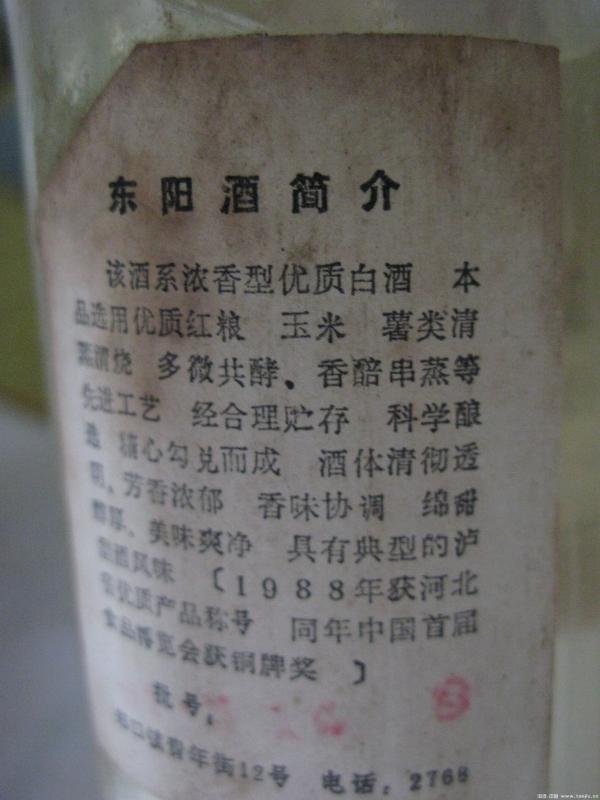 东阳酒简介
该酒系浓香型优质白酒 本
品选用优质红粮 玉米 薯类清
蒸清烧 多微共酵、香醅串蒸等
先进工艺 经合理贮存 科学酿
造 精心勾兑而成 酒体清彻透
明、芳香浓郁 香味协调 绵甜
醇厚、美味爽净 具有典型的泸
型酒风味 〔1988年获河北
省优质产品称号 同年中国首届
食品博览会获铜牌奖 〕
批号:
口镇青年街12号 电话:2768